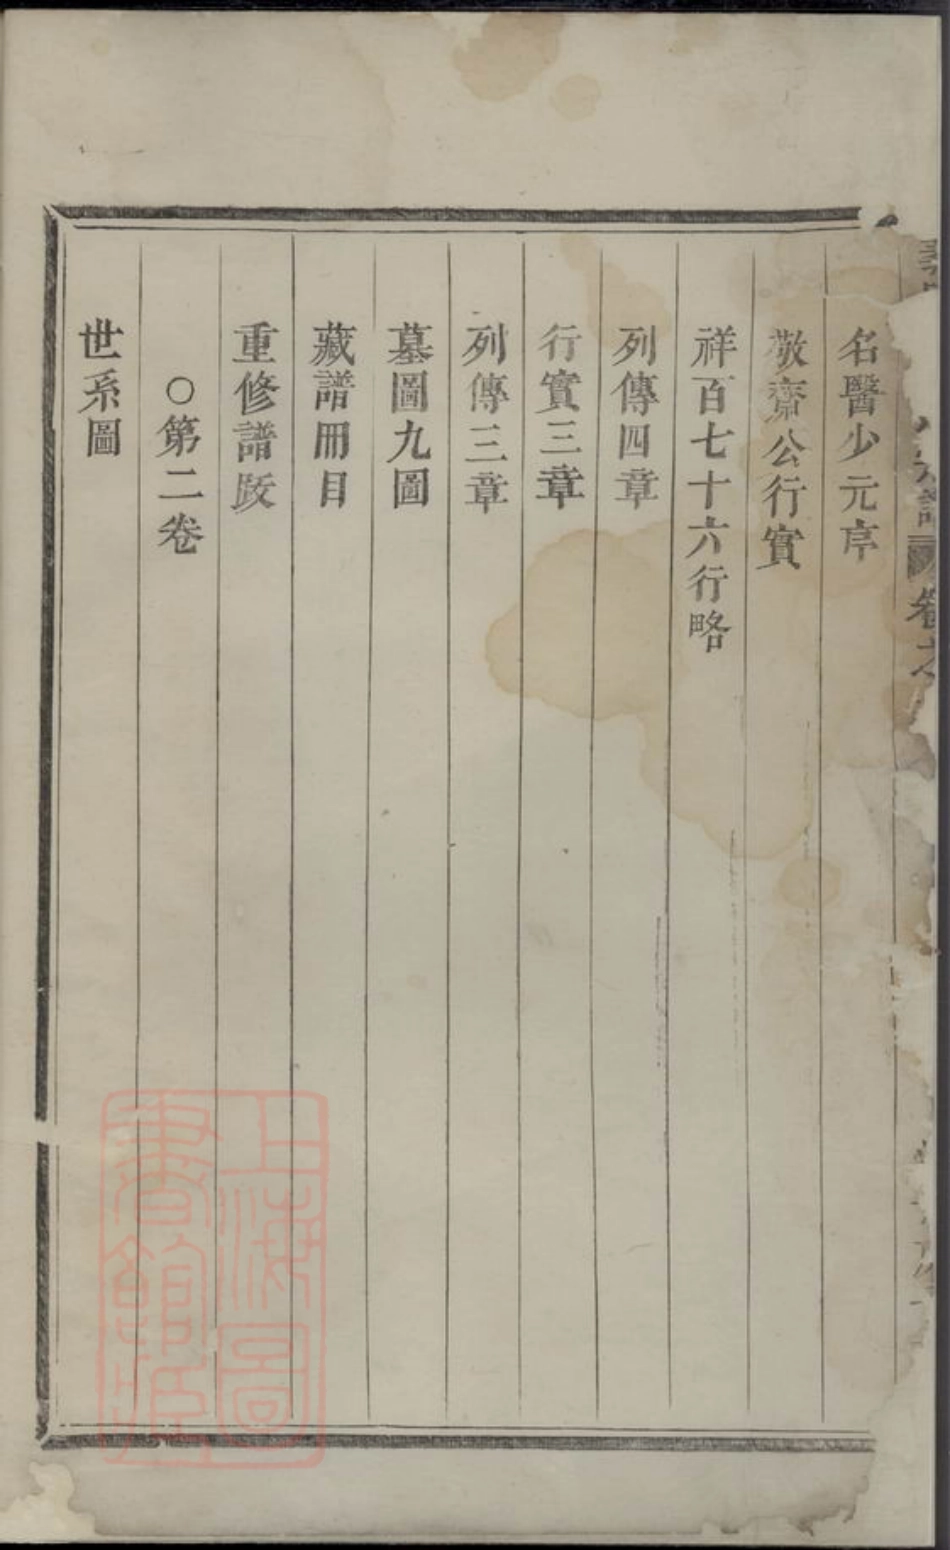 名醫少元序
敬齋公行實
祥百七十六行略
列傳四章
行實三章
列傳三章
墓圖九圖
藏譜冊目
重修譜跋
○第二卷
世系圖
上海圖
書館藏